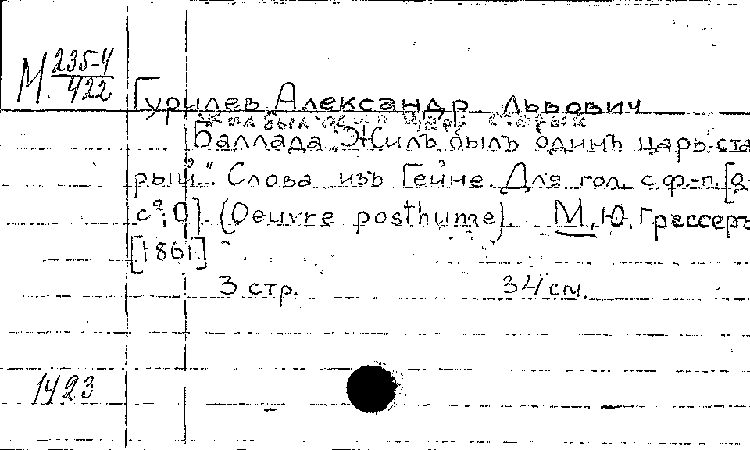 М 235-4
422
Гурилев Александр Львович
Баллада "Жилъ былъ одинъ царь ста
рый". Слова изъ Гейне. Для гол. с ф-п. [d-
c²; D]. (Oeuvre posthume). М., Ю. Грессеръ
[1861]
3 стр. 34 см.
1423